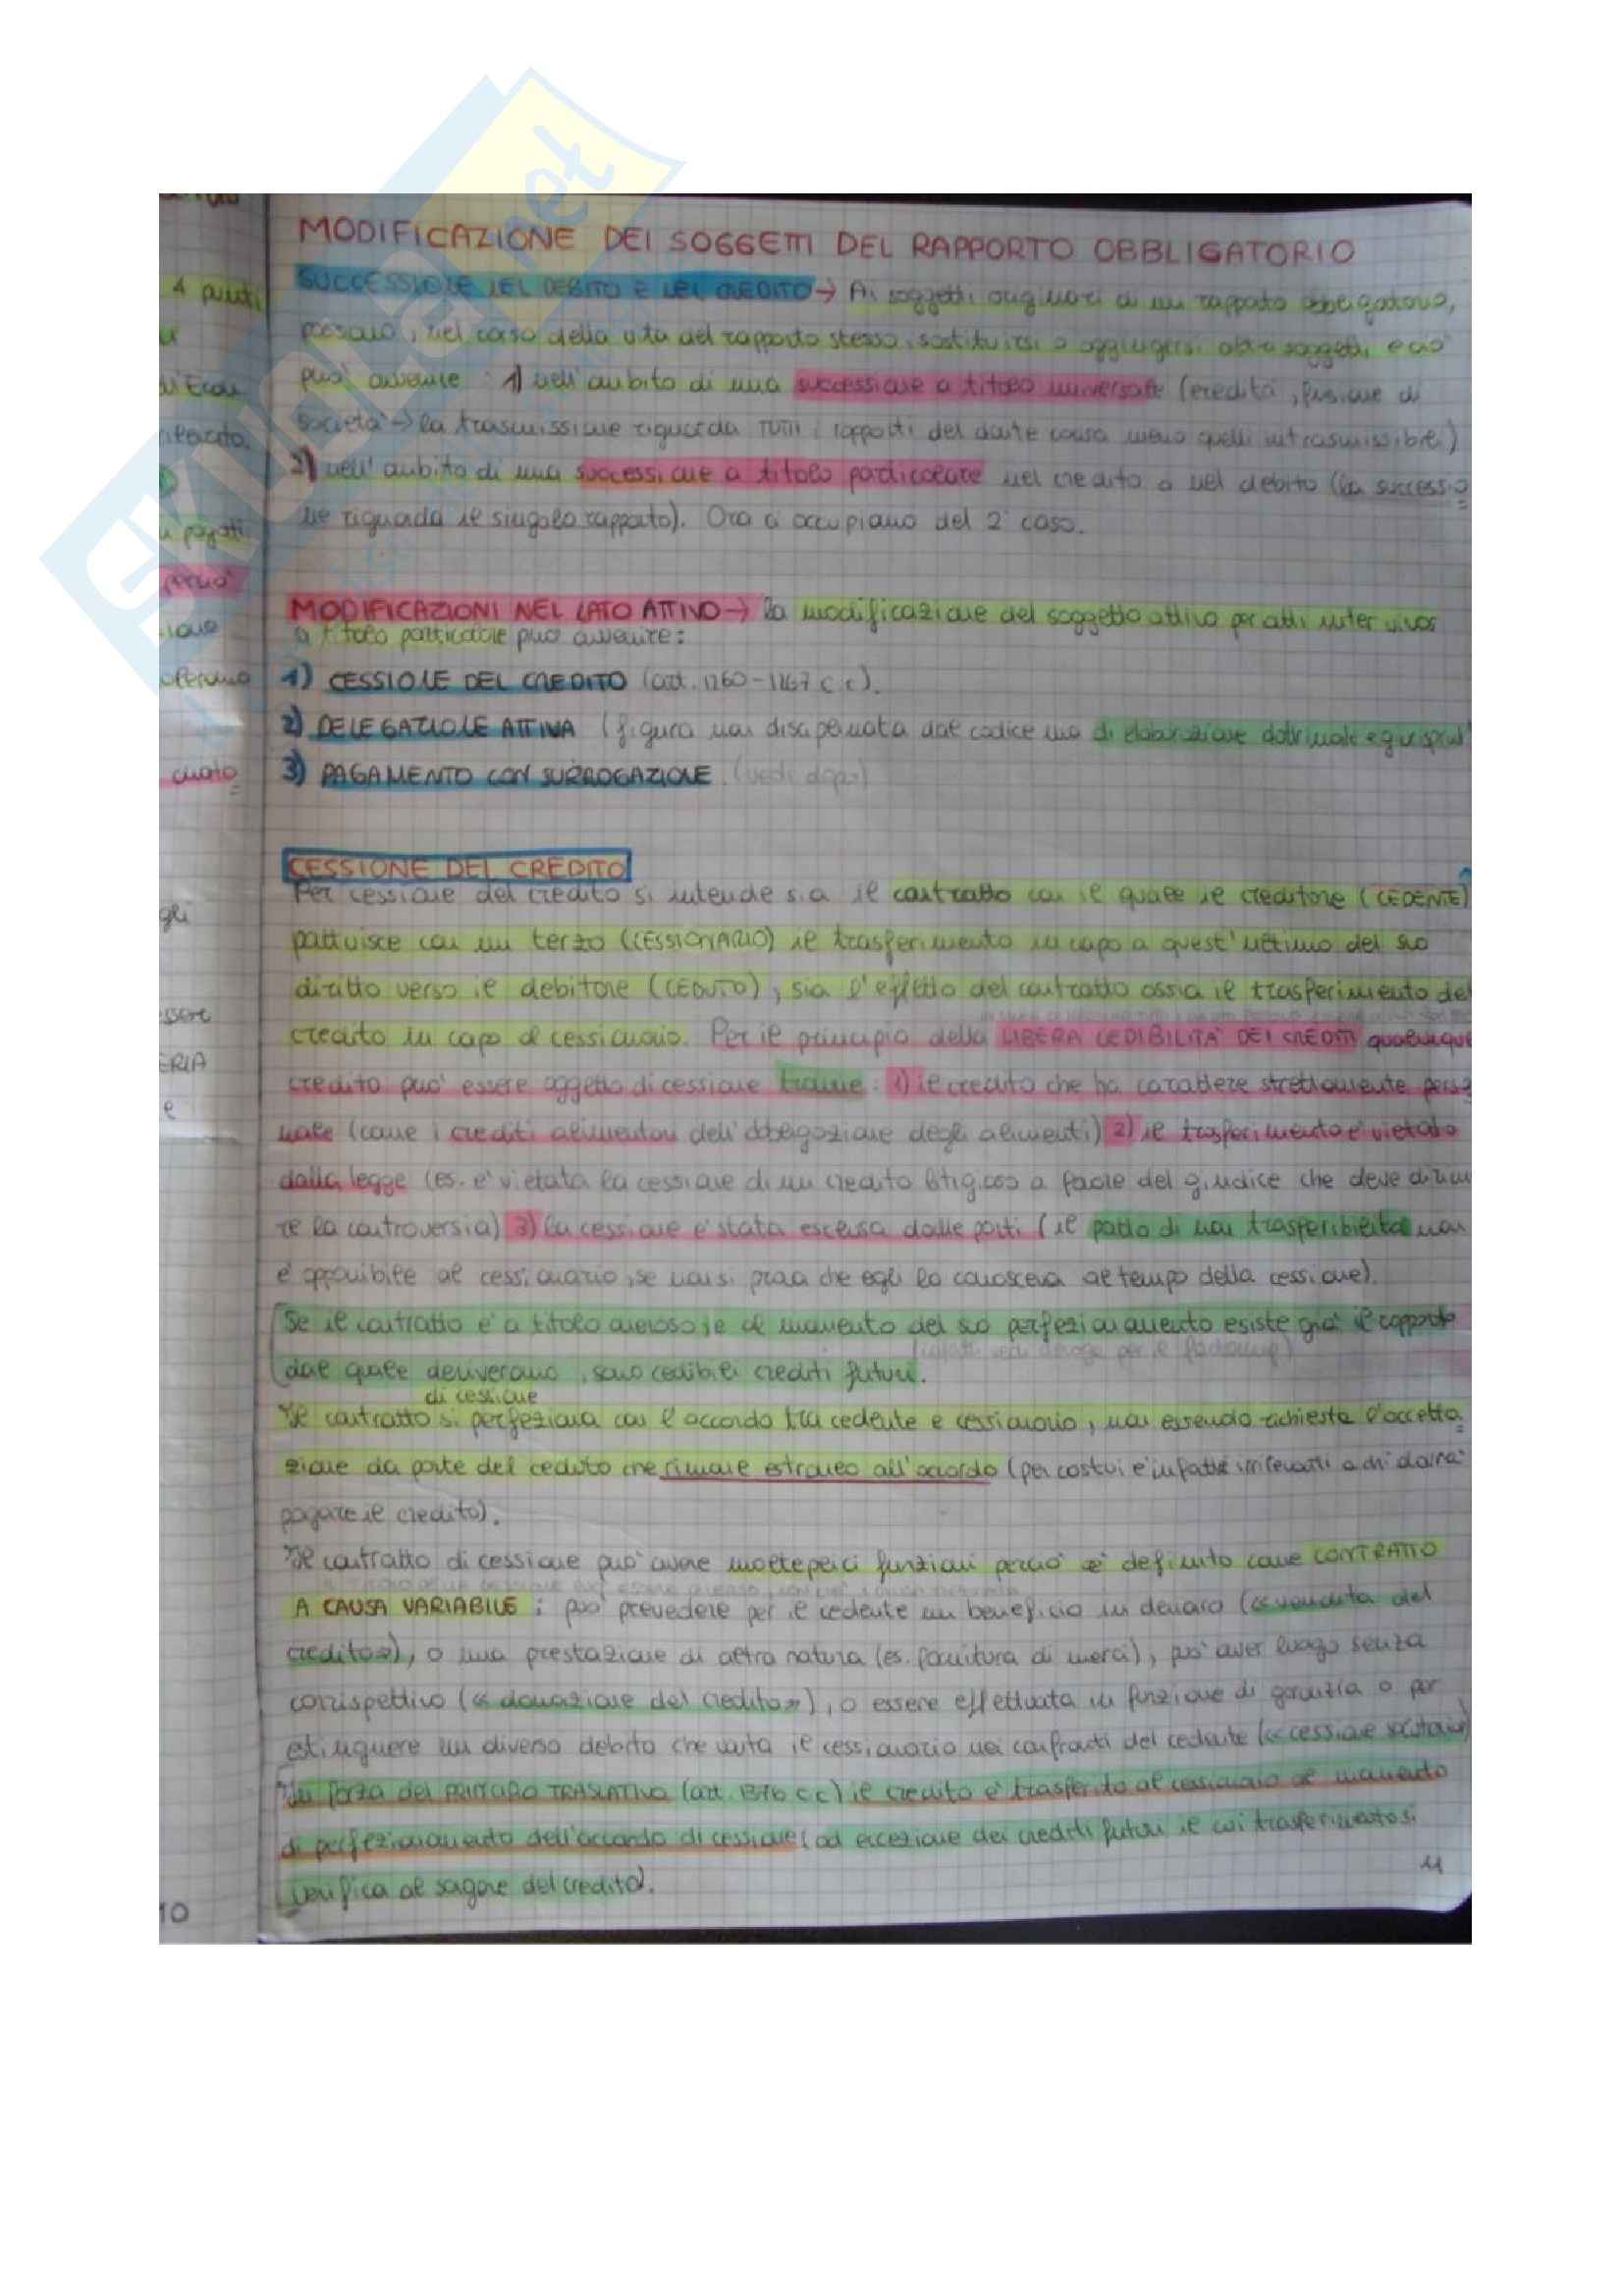 SKUOLA.net
MODIFICAZIONE DEI SOGGETTI DEL RAPPORTO OBBLIGATORIO
SUCCESSIONE NEL DEBITO E NEL CREDITO → Ai soggetti originari di un rapporto obbligatorio,
possano, nel corso della vita del rapporto stesso, sostituirsi o aggiungersi altri soggetti, e ciò
può avvenire: 1) nell'ambito di una successione a titolo universale (eredità, fusione di
società → la trasmissione riguarda TUTTI i rapporti del dante causa meno quelli intrasmissibili)
2) nell'ambito di una successione a titolo particolare nel credito o nel debito (la successio
ne riguarda il singolo rapporto). Ora ci occupiamo del 2° caso.
MODIFICAZIONI NEL LATO ATTIVO → la modificazione del soggetto attivo per atti inter vivos
a titolo particolare può avvenire:
1) CESSIONE DEL CREDITO (art. 1260-1267 c.c).
2) DELEGAZIONE ATTIVA (figura non disciplinata dal codice ma di elaborazione dottrinale e giurisprud
3) PAGAMENTO CON SURROGAZIONE. (vedi dopo)
CESSIONE DEL CREDITO
Per cessione del credito si intende sia il contratto con il quale il creditore (CEDENTE)
pattuisce con un terzo (CESSIONARIO) il trasferimento in capo a quest'ultimo del suo
diritto verso il debitore (CEDUTO), sia l'effetto del contratto ossia il trasferimento del
credito in capo al cessionario. Per il principio della LIBERA CEDIBILITA' DEI CREDITI qualunque
credito può essere oggetto di cessione tranne: 1) il credito che ha carattere strettamente perso
nale (come i crediti alimentari dell'obbligazione degli alimenti) 2) il trasferimento è vietato
dalla legge (es. è vietata la cessione di un credito litigioso a favore del giudice che deve dirime
re la controversia) 3) la cessione è stata esclusa dalle parti (il patto di non trasferibilità non
è opponibile al cessionario, se non si prova che egli lo conosceva al tempo della cessione).
Se il contratto è a titolo oneroso, e al momento del suo perfezionamento esiste già il rapporto
(infatti vedi deroga per il factoring)
dal quale deriveranno, sono cedibili crediti futuri.
di cessione
Il contratto si perfeziona con l'accordo tra cedente e cessionario, non essendo richiesta l'accetta
zione da parte del ceduto che rimane estraneo all'accordo (per costui è infatti irrilevante a chi dovrà
pagare il credito).
Il contratto di cessione può avere molteplici funzioni perciò è definito come CONTRATTO
A CAUSA VARIABILE: può prevedere per il cedente un beneficio in denaro (« vendita del
credito»), o una prestazione di altra natura (es. fornitura di merci), può aver luogo senza
corrispettivo (« donazione del credito»), o essere effettuata in funzione di garanzia o per
estinguere un diverso debito che vanta il cessionario nei confronti del cedente (« cessione solutoria»)
In forza del PRINCIPIO TRASLATIVO (art. 1376 c.c) il credito è trasferito al cessionario al momento
di perfezionamento dell'accordo di cessione (ad eccezione dei crediti futuri il cui trasferimento si
verifica al sorgere del credito).
11
4 punti
pagati
perciò
gli
ERIA
e
10